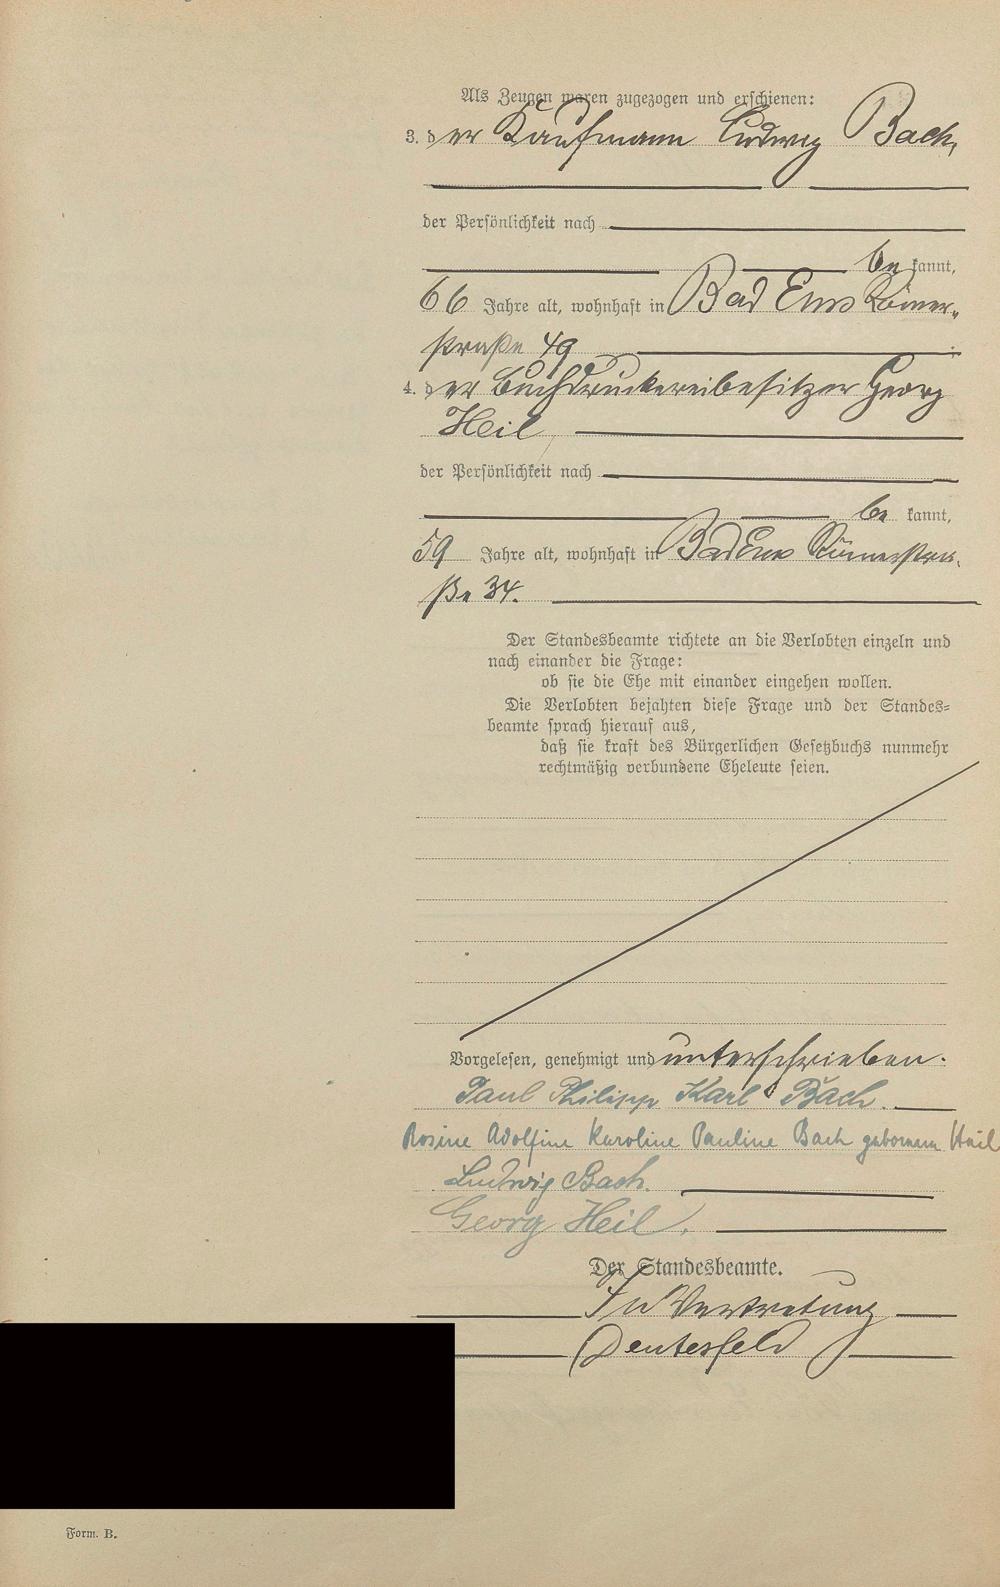 Als Zeugen waren zugezogen und erschienen:
3. der Kaufmann Ludwig Bach,
der Persönlichkeit nach
be kannt,
66 Jahre alt, wohnhaft in Bad Ems Römer-
straße 49
4. der Buchdruckereibesitzer Georg
Heil
der Persönlichkeit nach
be kannt,
59 Jahre alt, wohnhaft in Bad Ems Römerstra-
ße 34.
Der Standesbeamte richtete an die Verlobten einzeln und
nach einander die Frage:
ob sie die Ehe mit einander eingehen wollen.
Die Verlobten bejahten diese Frage und der Standes-
beamte sprach hierauf aus,
daß sie kraft des Bürgerlichen Gesetzbuchs nunmehr
rechtmäßig verbundene Eheleute seien.
Vorgelesen, genehmigt und unterschrieben.
Paul Philipp Karl Bach.
Rosine Adolfine Karoline Pauline Bach geborenen Heil
Ludwig Bach.
Georg Heil.
Der Standesbeamte.
In Vertretung
Form. B.